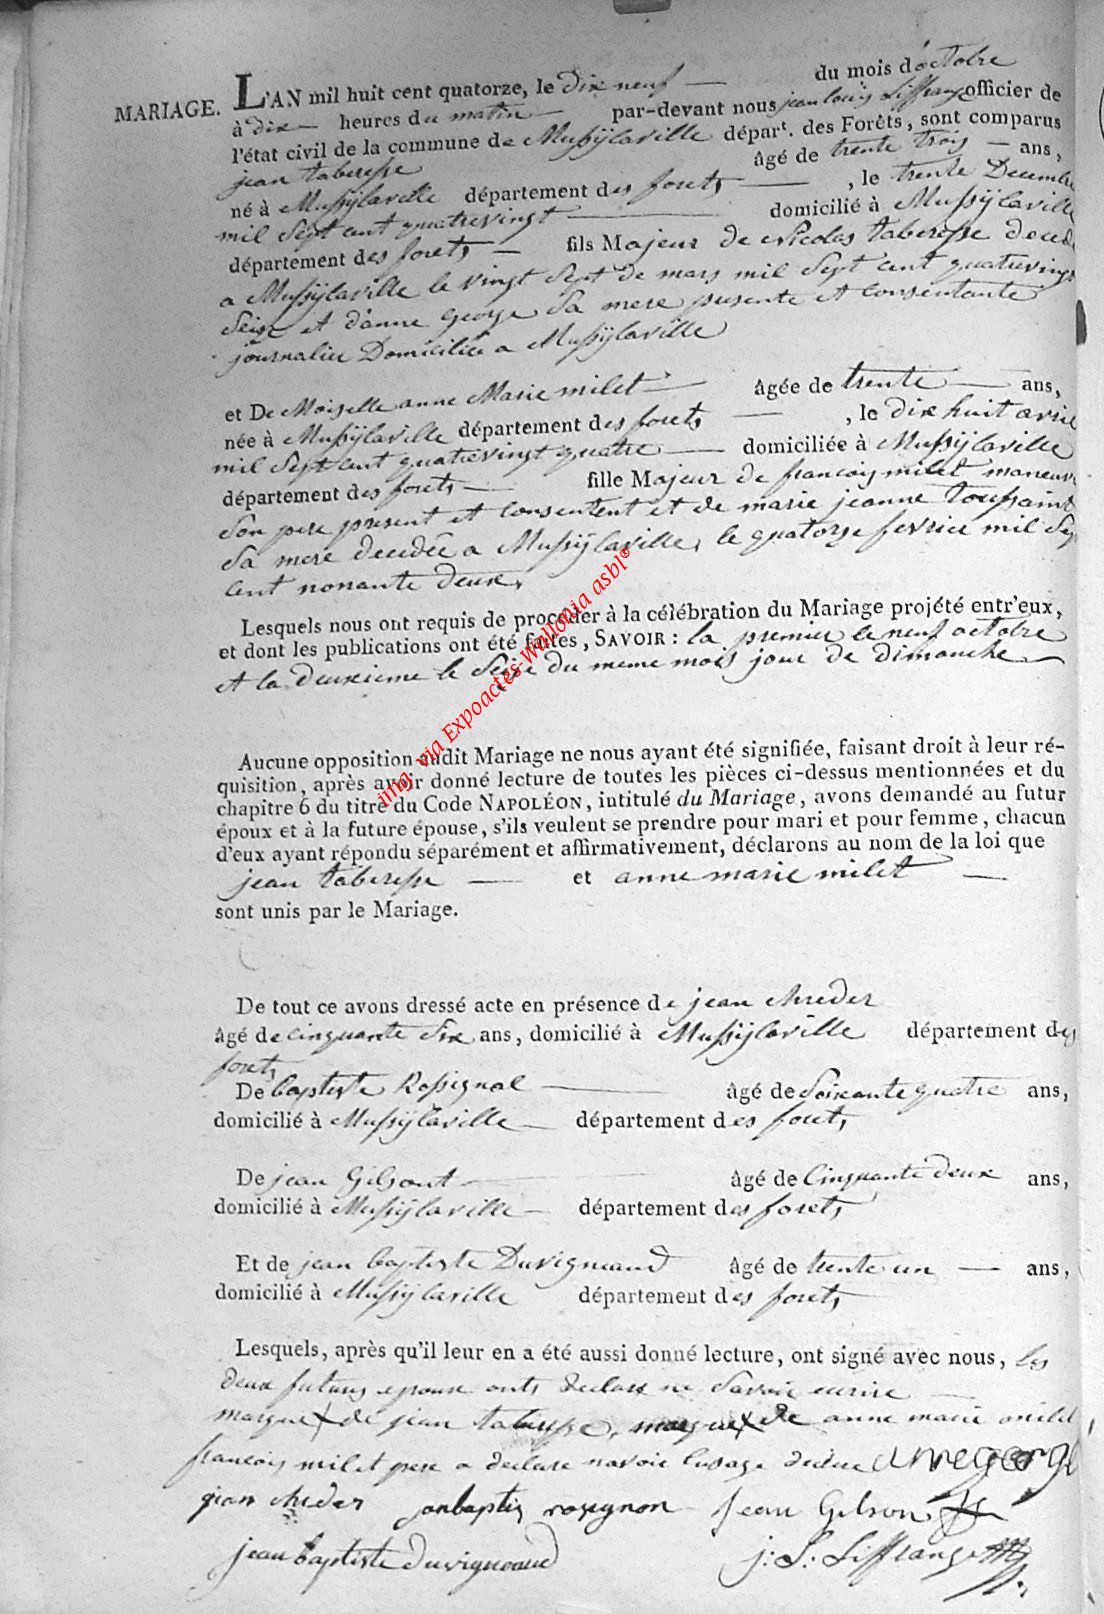 MARIAGE.
L'AN mil huit cent quatorze, le dix neuf du mois d'octobre
à dix heures du matin par-devant nous jean louis Liffrange officier de
l'état civil de la commune de Mussÿlaville départ. des Forêts, sont comparus
jean taberesse âgé de trente trois ans,
né à Mussÿlaville département des forets, le trente Decembre
mil sept cent quatrevingt domicilié à Mussÿlaville
département des forets fils Majeur de Nicolas taberesse decede
a Mussÿlaville le vingt sept de mars mil sept cent quatrevingt
seise et d'anne george sa mere presente et consentante
journaliere Domiciliée a Mussÿlaville
et De Moiselle anne Marie milet âgée de trente ans,
née à Mussÿlaville département des forets, le dix huit avril
mil sept cent quatrevingt quatre domiciliée à Mussÿlaville
département des forets fille Majeur de francois milet maneuvre
son pere present et consentent et de marie jeanne toussaint
sa mere decedée a Mussÿlaville, le quatorze fevrier mil sept
cent nonante deux,
Lesquels nous ont requis de procéder à la célébration du Mariage projété entr'eux,
et dont les publications ont été faites, SAVOIR : la premier le neuf octobre
et la deuxieme le seize du meme mois jour de dimanche
Aucune opposition audit Mariage ne nous ayant été signifiée, faisant droit à leur ré-
quisition, après avoir donné lecture de toutes les pièces ci-dessus mentionnées et du
chapitre 6 du titre du Code NAPOLÉON, intitulé du Mariage, avons demandé au futur
époux et à la future épouse, s'ils veulent se prendre pour mari et pour femme, chacun
d'eux ayant répondu séparément et affirmativement, déclarons au nom de la loi que
jean taberesse et anne marie milet
sont unis par le Mariage.
De tout ce avons dressé acte en présence de jean chreder
âgé de cinquante six ans, domicilié à Mussÿlaville département des
forets
De baptiste Rossignal âgé de soixante quatre ans,
domicilié à Mussÿlaville département des forets
De jean Gilsont âgé de cinquante deux ans,
domicilié à Mussÿlaville département des forets
Et de jean baptiste Duvigneaud âgé de trente un ans,
domicilié à Mussÿlaville département des forets
Lesquels, après qu'il leur en a été aussi donné lecture, ont signé avec nous, les
deux futurs epoux onts declare ne savoir ecrire
marque x de jean taberesse, marque x de anne marie milet
francois milet pere a declare navoir lusage decrire anne georg
jean chreder janbaptis rosignon jean Gilson
jean baptiste duvigneaud j: L: Liffrange
img. via Expoactes-Wallonia asbl®